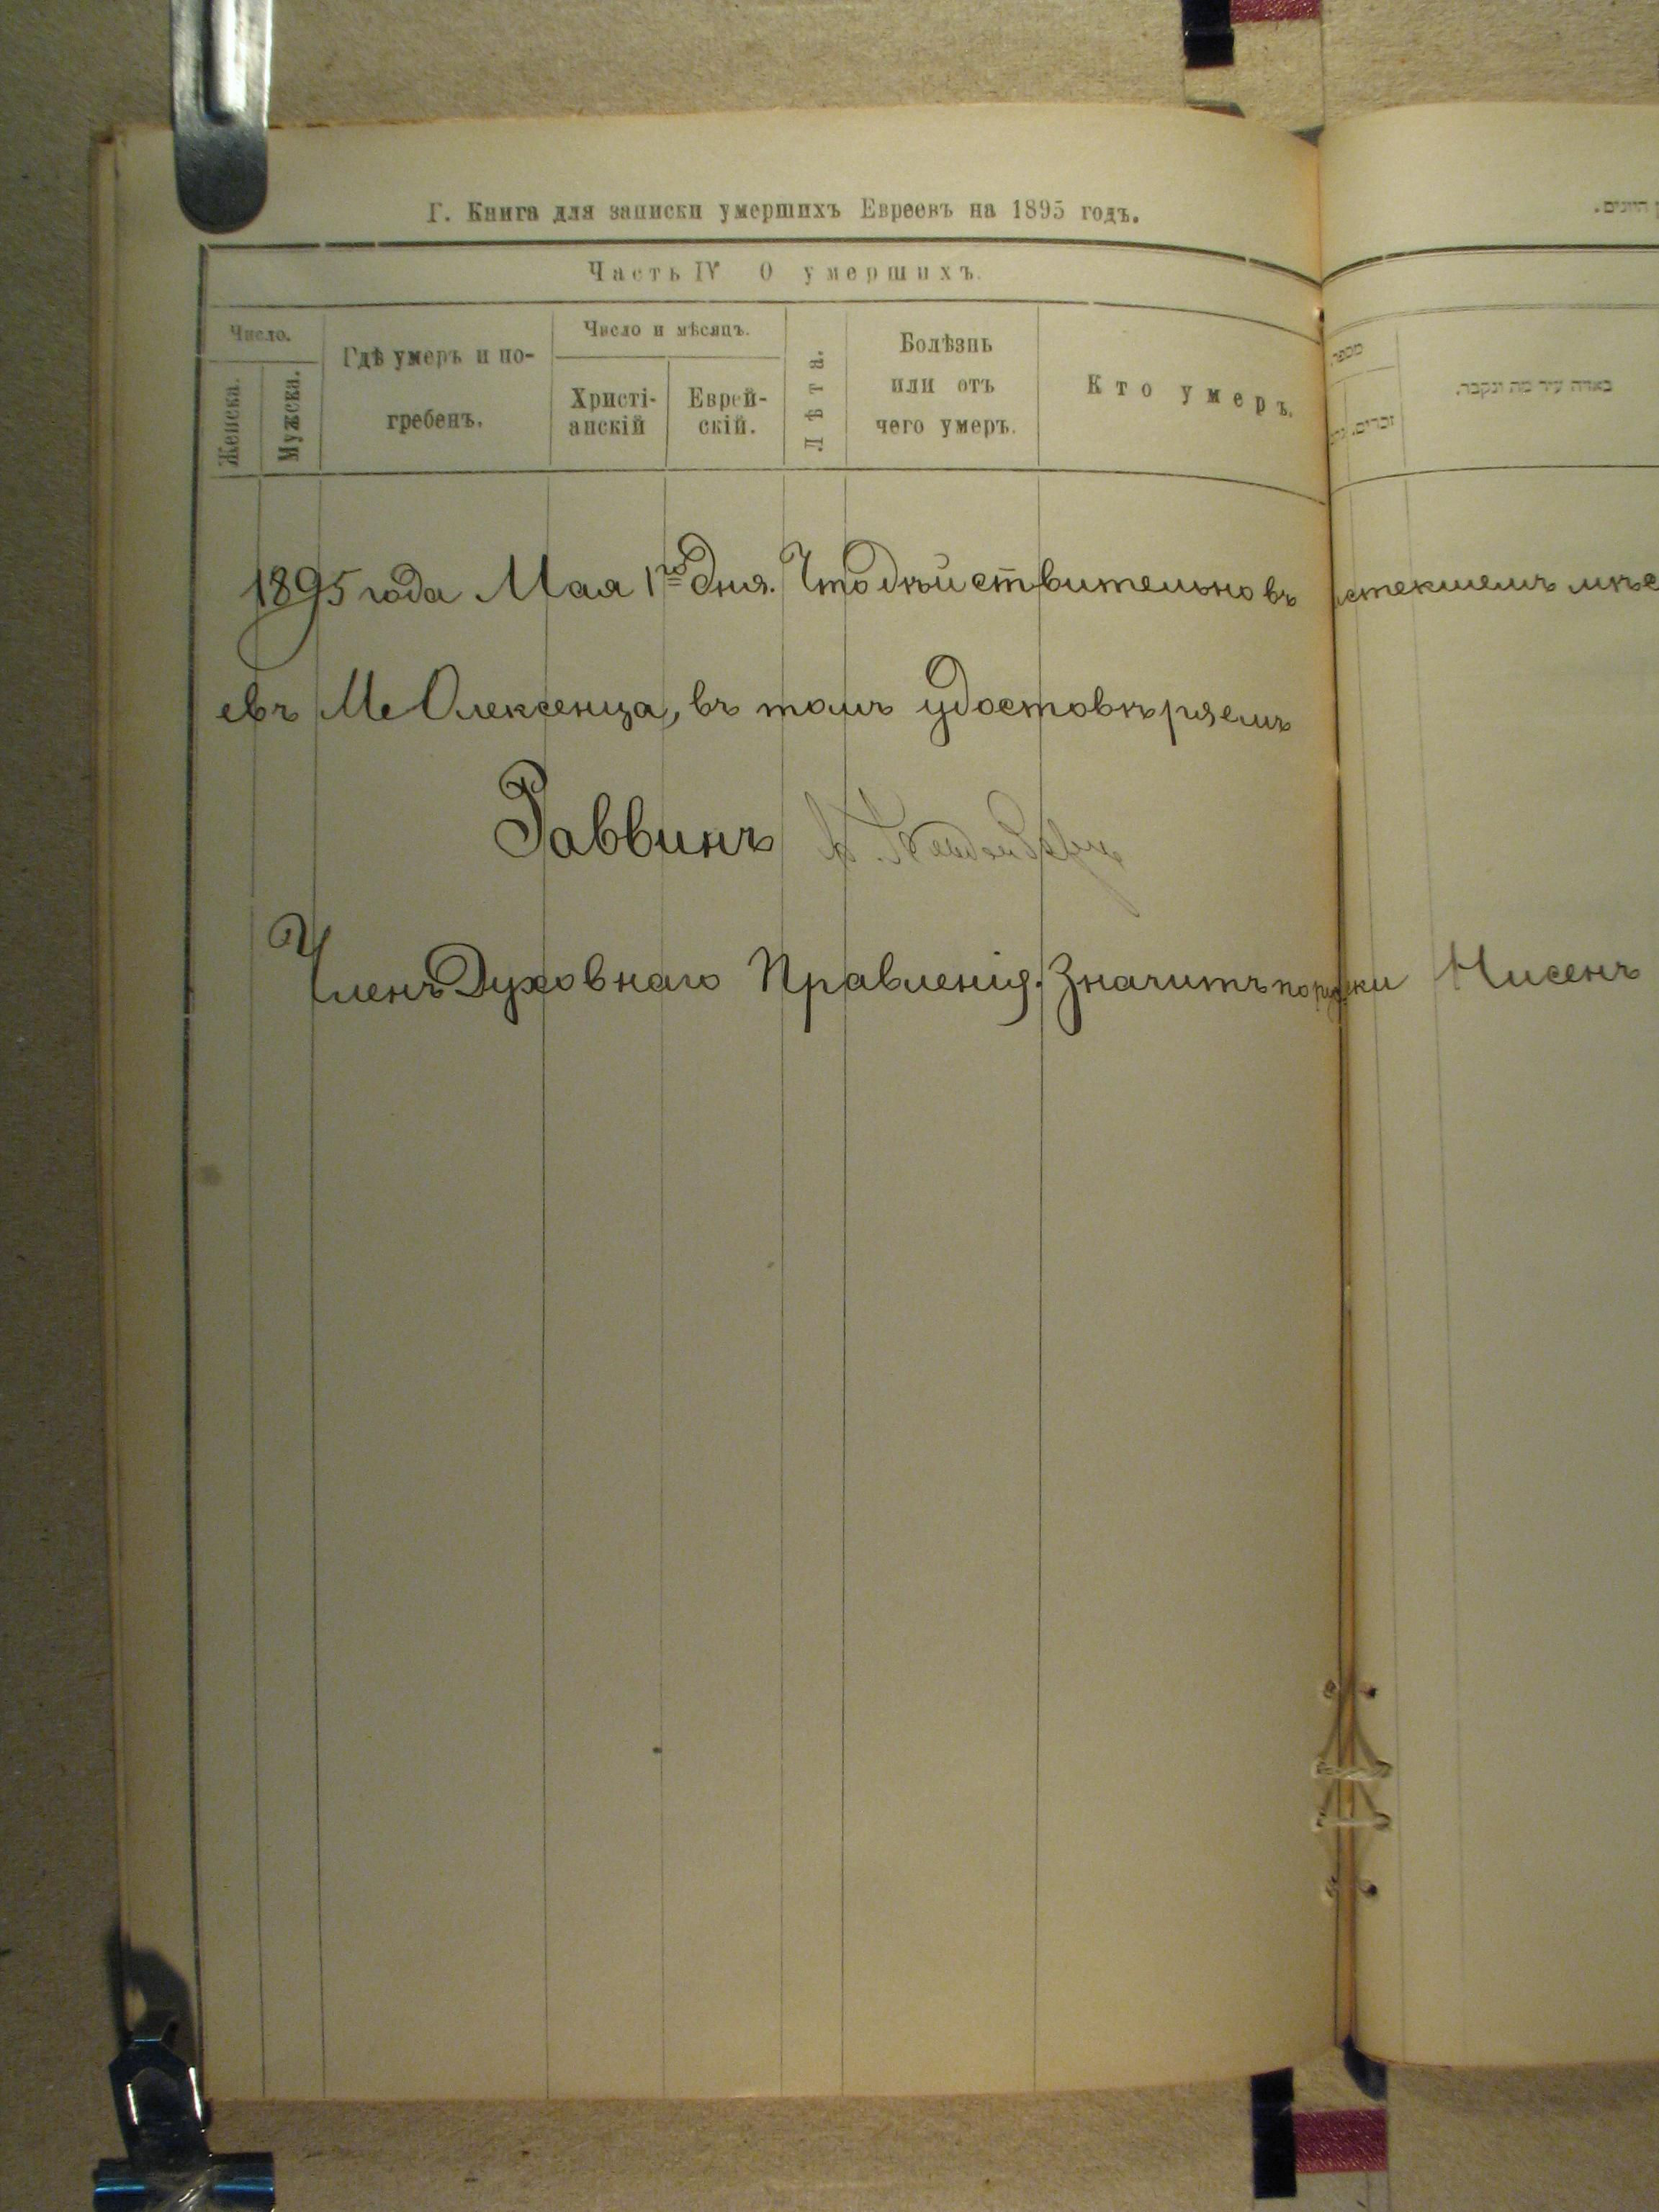 Г. Книга для записки умершихъ Евреевъ на 1895 годъ.
Часть IV О умершихъ.
Число.
Женска.
Мужска.
Гдѣ умеръ и по-
гребенъ.
Число и мѣсяцъ.
Христі-
анскій
Еврей-
скій.
Лѣта.
Болѣзнь
или отъ
чего умеръ.
Кто умеръ.
מספר
זכרים.
באיזה עיר מת ונקבר.
1895 года Мая 1го дня. Что дѣйствительно въ истекшемъ мѣс
евъ Ме Олексенца, въ томъ удостовѣряемъ
Раввинъ
Членъ Духовнаго Правленія. Значитъ по русски Нисенъ